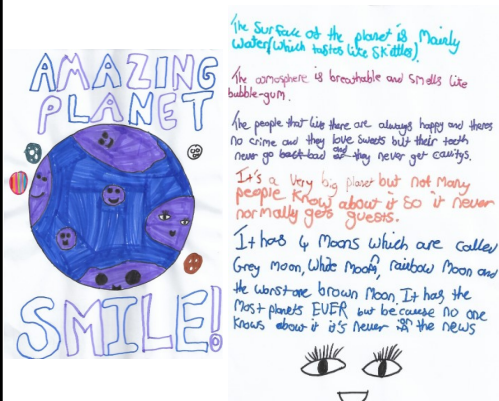 AMAZING
PLANET
SMILE!
The Surface of the planet is Mainly
Water (which tastes like Skittles).
The atmosphere is breathable and smells like
bubble-gum.
The people that live there are always happy and theres
no crime and they love sweets but their teeth
never go back bad and they never get cavitys.
It's a very big planet but not Many
people know about it so it never
normally gets guests.
It has 4 Moons which are called
Grey moon, White Moon, rainbow Moon and
the worst one brown Moon. It has the
Most planets EVER but because no one
knows about it it's never the news